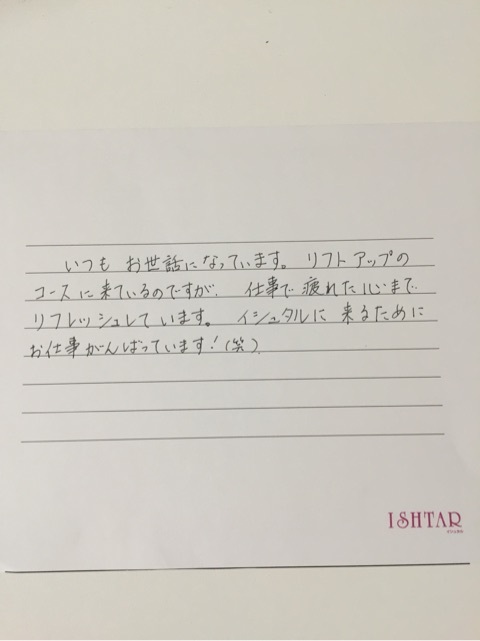 いつも お世話になっています。 リフトアップの
コースに来ているのですが、 仕事で疲れた心まで
リフレッシュしています。 イシュタルに 来るために
お仕事がんばっています！(笑)
ISHTAR